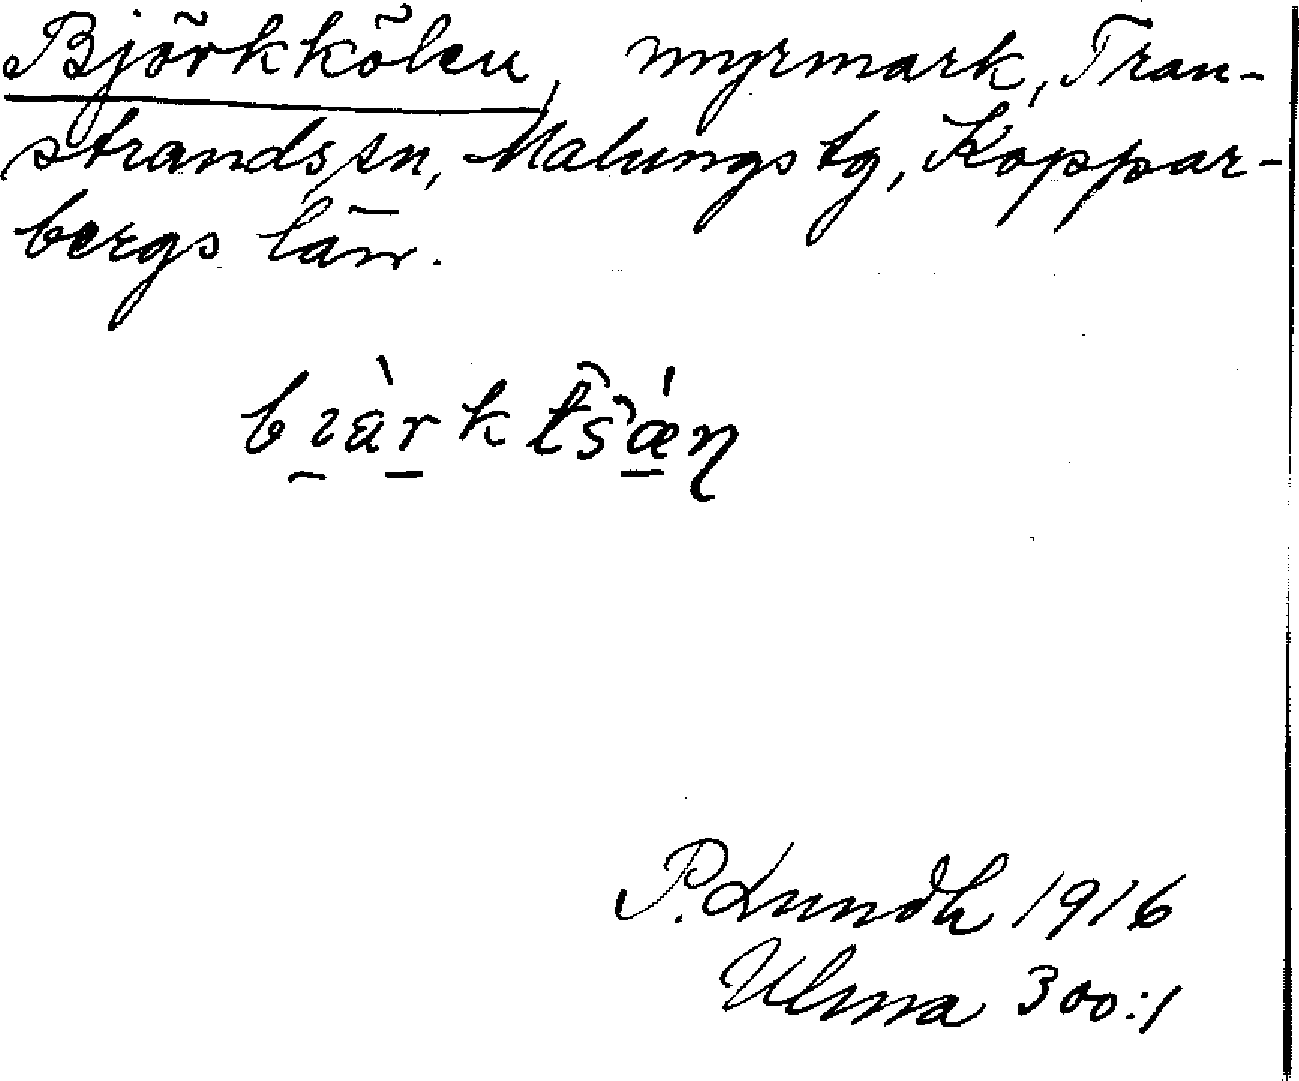 Björkkölen, myrmark, Tran-
strands sn, Malungs tg, Koppar-
bergs län.
P. Lundh 1916
Ulma 300:1